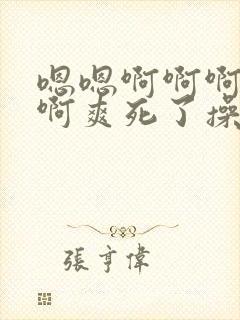 嗯嗯啊啊啊
啊爽死了操
張亨偉